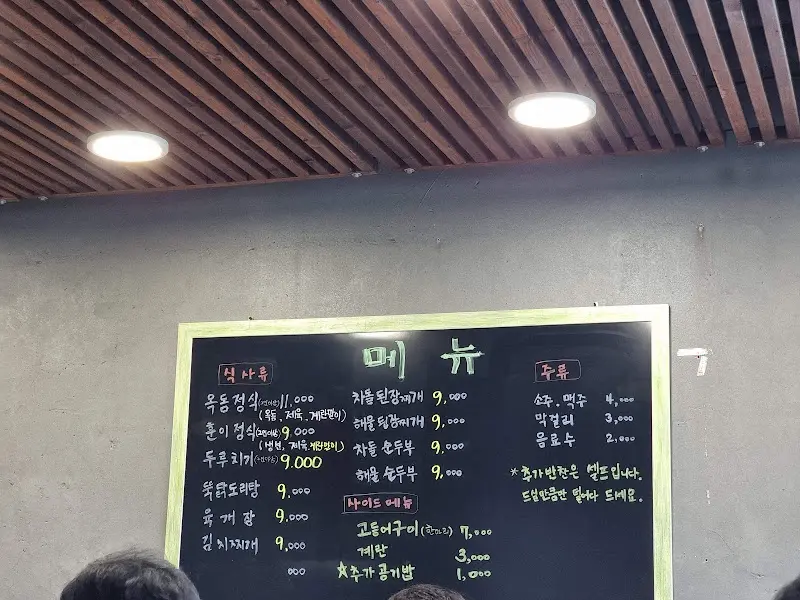 메뉴
식사류
옥동정식 11,000
(옥돔, 제육, 계란말이)
훈이정식 9,000
제육, 계란말이)
두루치기 9.000
뚝닭도리탕 9,000
육개장 9,000
김치찌개 9,000
000
차돌된장찌개 9,000
해물된장찌개 9,000
차돌 순두부 9,000
해물 순두부 9,000
사이드메뉴
고등어구이(한마리) 7,000
계란 3,000
☆추가공기밥 1,000
주류
소주, 맥주 4,000
막걸리 3,000
음료수 2,000
*추가반찬은 셀프입니다.
드실만큼만 덜어다 드세요.